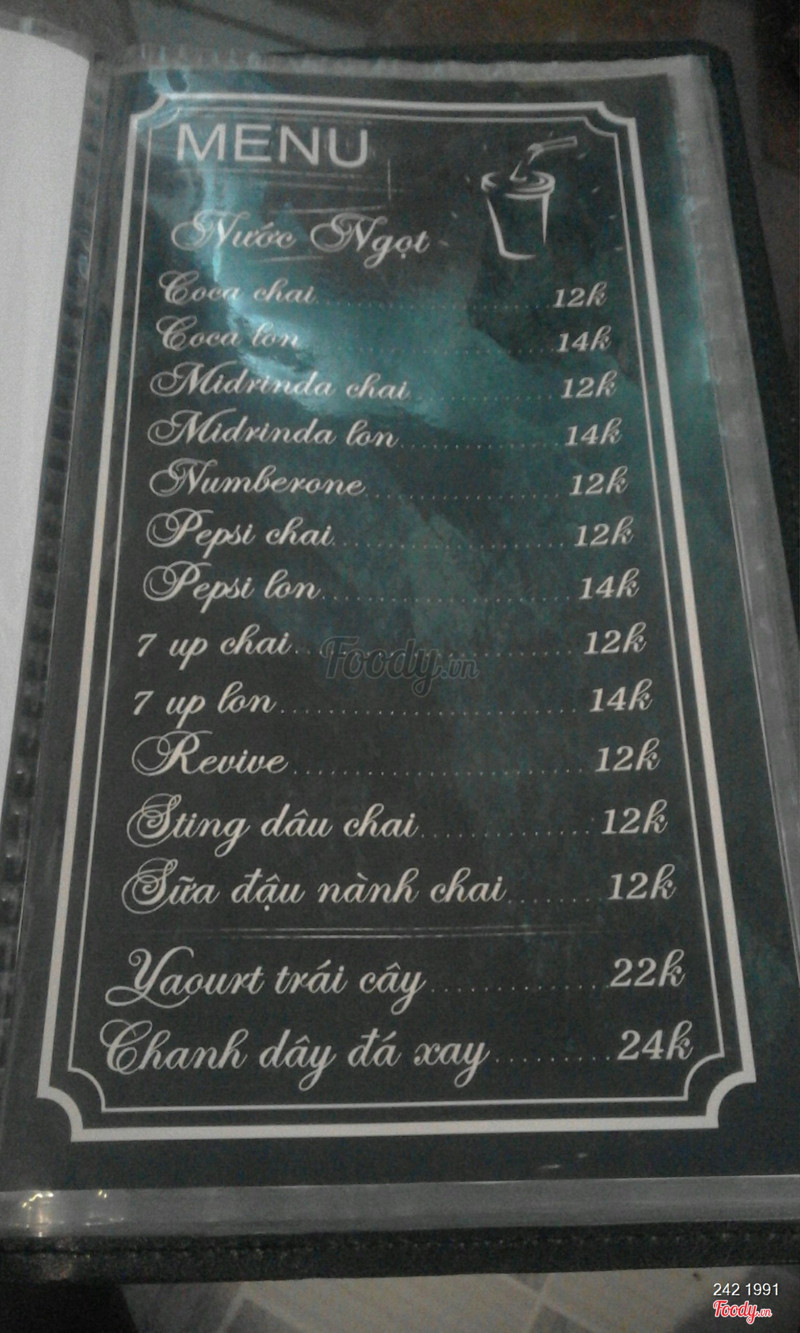 MENU
Nước Ngọt
Coca chai 12k
Coca lon 14k
Midrinda chai 12k
Midrinda lon 14k
Numberone 12k
Pepsi chai 12k
Pepsi lon 14k
7 up chai 12k
7 up lon 14k
Revive 12k
Sting dâu chai 12k
Sữa đậu nành chai 12k
Yaourt trái cây 22k
Chanh dây đá xay 24k
Foody.vn
242 1991
Foody.vn